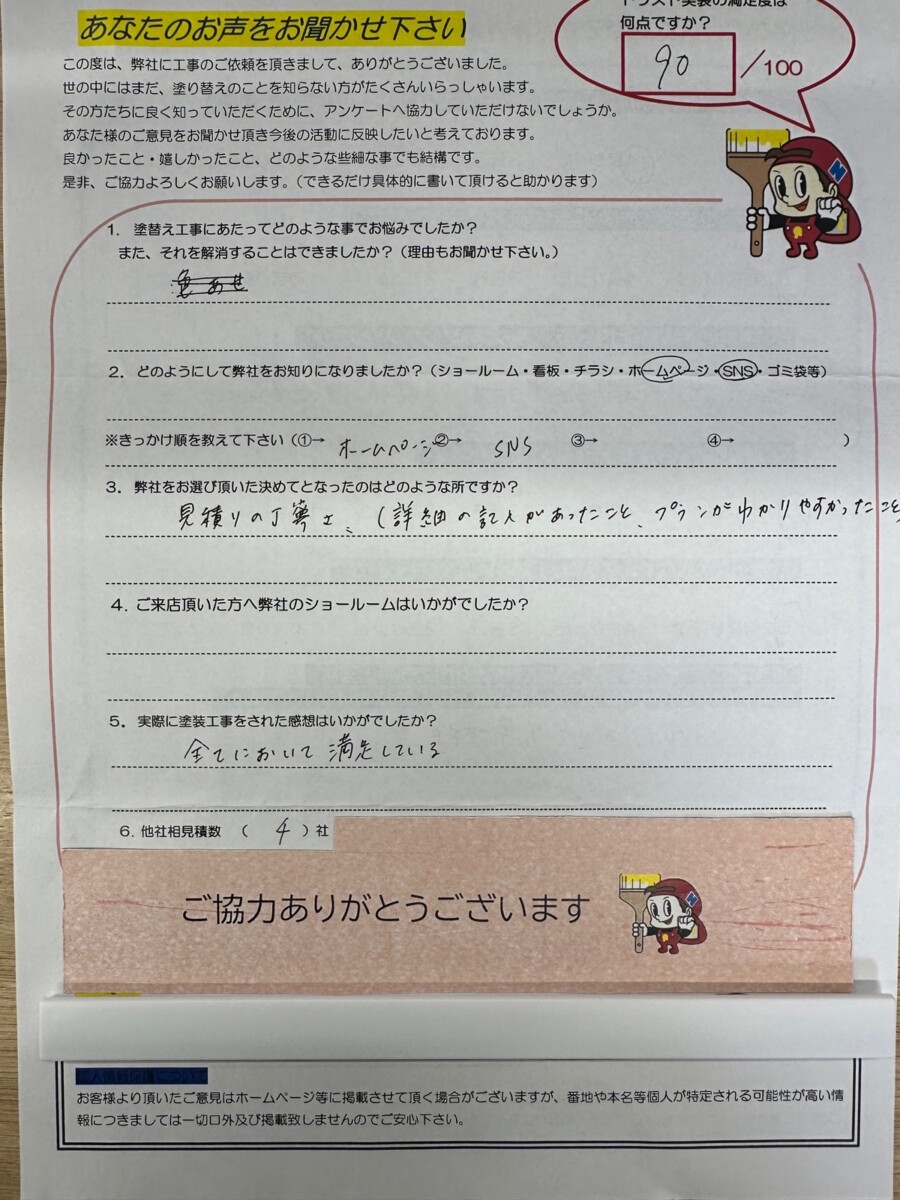 あなたのお声をお聞かせ下さい
何点ですか？
90 /100
この度は、弊社に工事のご依頼を頂きまして、ありがとうございました。
世の中にはまだ、塗り替えのことを知らない方がたくさんいらっしゃいます。
その方たちに良く知っていただくために、アンケートへ協力していただけないでしょうか。
あなた様のご意見をお聞かせ頂き今後の活動に反映したいと考えております。
良かったこと・嬉しかったこと、どのような些細な事でも結構です。
是非、ご協力よろしくお願いします。（できるだけ具体的に書いて頂けると助かります）
1． 塗替え工事にあたってどのような事でお悩みでしたか？
また、それを解消することはできましたか？（理由もお聞かせ下さい。）
色あせ
2． どのようにして弊社をお知りになりましたか？（ショールーム・看板・チラシ・ホームページ・SNS・ゴミ袋等）
※きっかけ順を教えて下さい（①→ ホームページ ②→ SNS ③→ ④→ ）
3． 弊社をお選び頂いた決めてとなったのはどのような所ですか？
見積りの丁寧さ、（詳細の記入があったこと、プランがわかりやすかったこと
4．ご来店頂いた方へ弊社のショールームはいかがでしたか？
5． 実際に塗装工事をされた感想はいかがでしたか？
全てにおいて満足している
6．他社相見積数 （ 4 ）社
ご協力ありがとうございます
個人情報保護について
お客様より頂いたご意見はホームページ等に掲載させて頂く場合がございますが、番地や本名等個人が特定される可能性が高い情
報につきましては一切口外及び掲載致しませんのでご安心下さい。